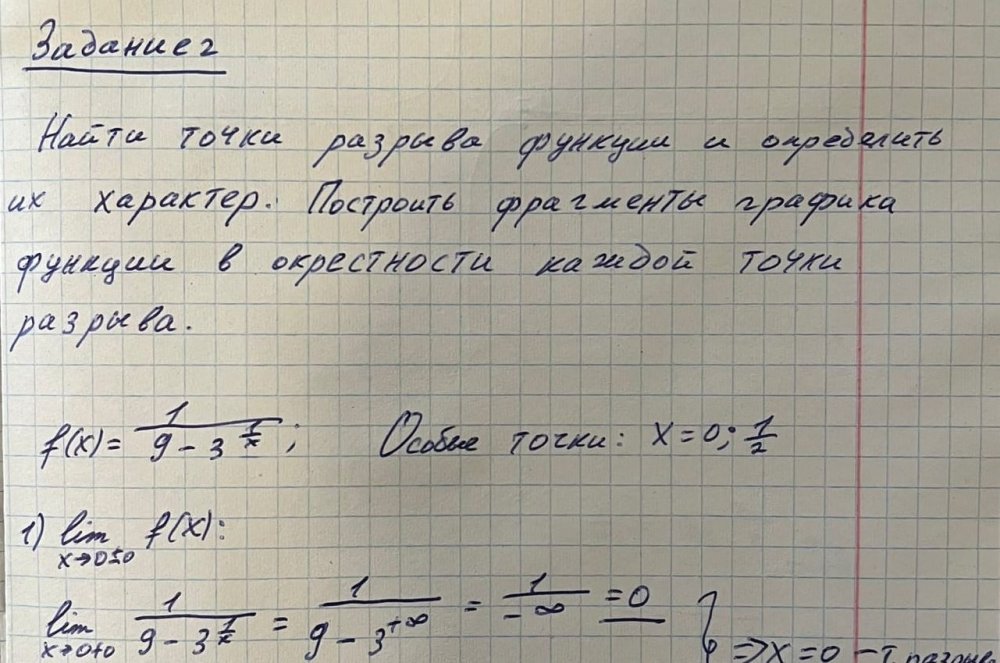 Задание 2
Найти точки разрыва функции и определить
их характер. Построить фрагменты графика
функции в окрестности каждой точки
разрыва.
f(x) = 1/(9 - 3^(1/x)); Особые точки: x = 0; 1/2
1) lim x→0±0 f(x):
lim x→0+0 1/(9 - 3^(1/x)) = 1/(9 - 3^(+∞)) = 1/(-∞) = 0 } => x = 0 - т разрыв